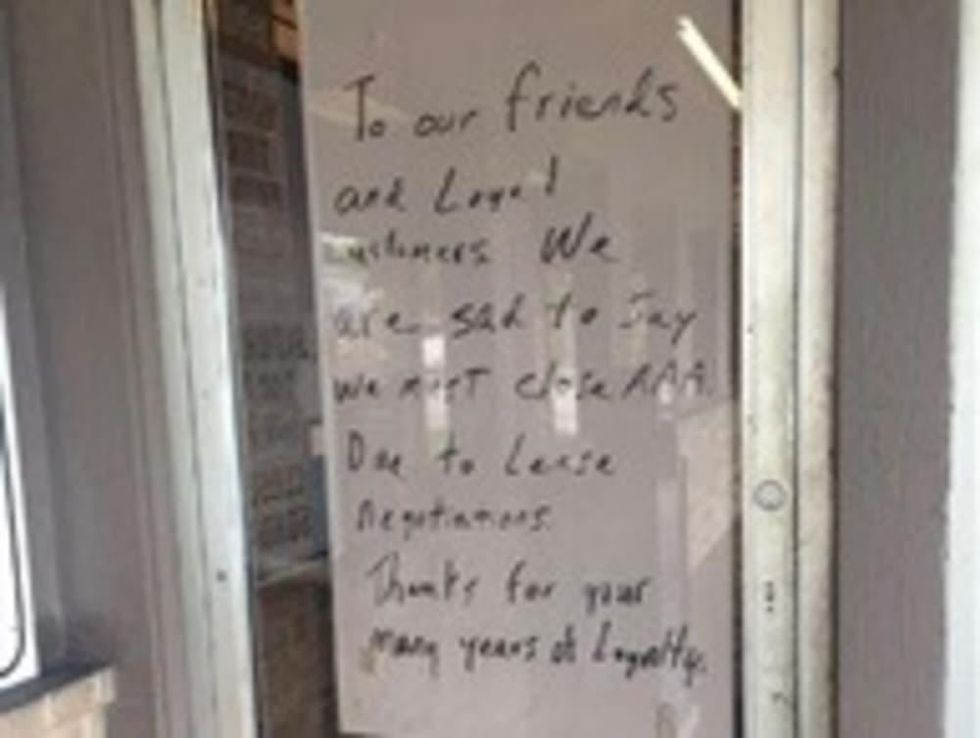 To our friends
and Loyal
customers We
are sad to Say
we must close AAA.
Due to Lease
negotiations.
Thanks for your
many years of Loyalty.